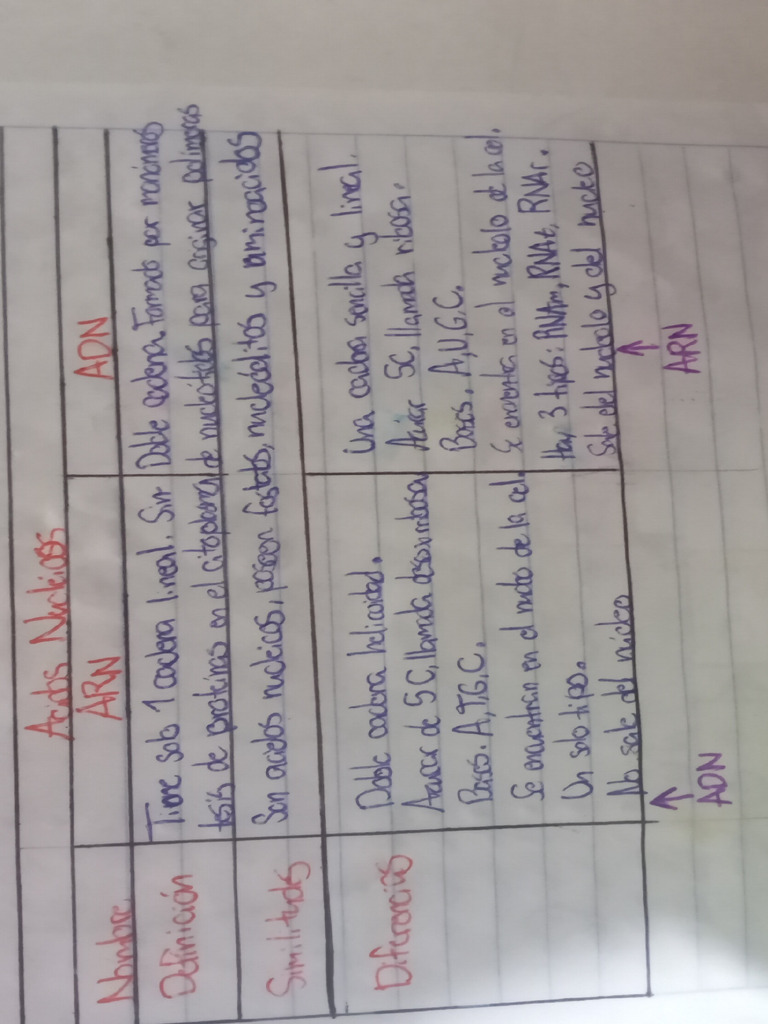 Acidos Nucleicos
Nombre ARN ADN
Definición Tiene solo 1 cadena lineal. Sin Doble cadena Formado por monómeros
tesis de proteínas en el citoplasma de nucleótidos para originar polímeros
Similitudes Son acidos nucleicos, poseen fosfato, y aminoacidos
Diferencias
Doble cadena helicoidal. Una cadena sencilla y lineal.
Azucar de 5C, llamada desoxirribosa Azucar 5C, llamada ribosa.
Bases. A,T,G,C. Bases. A,U,G,C.
Se encuentran en el nucleo de la cel. Se encuentra en el nucleolo de la cel.
Un solo tipo. Hay 3 tipos: RNAm, RNAt, RNAr.
No sale del núcleo Sale del nucleolo y del nucleo
↑ ↑
ADN ARN